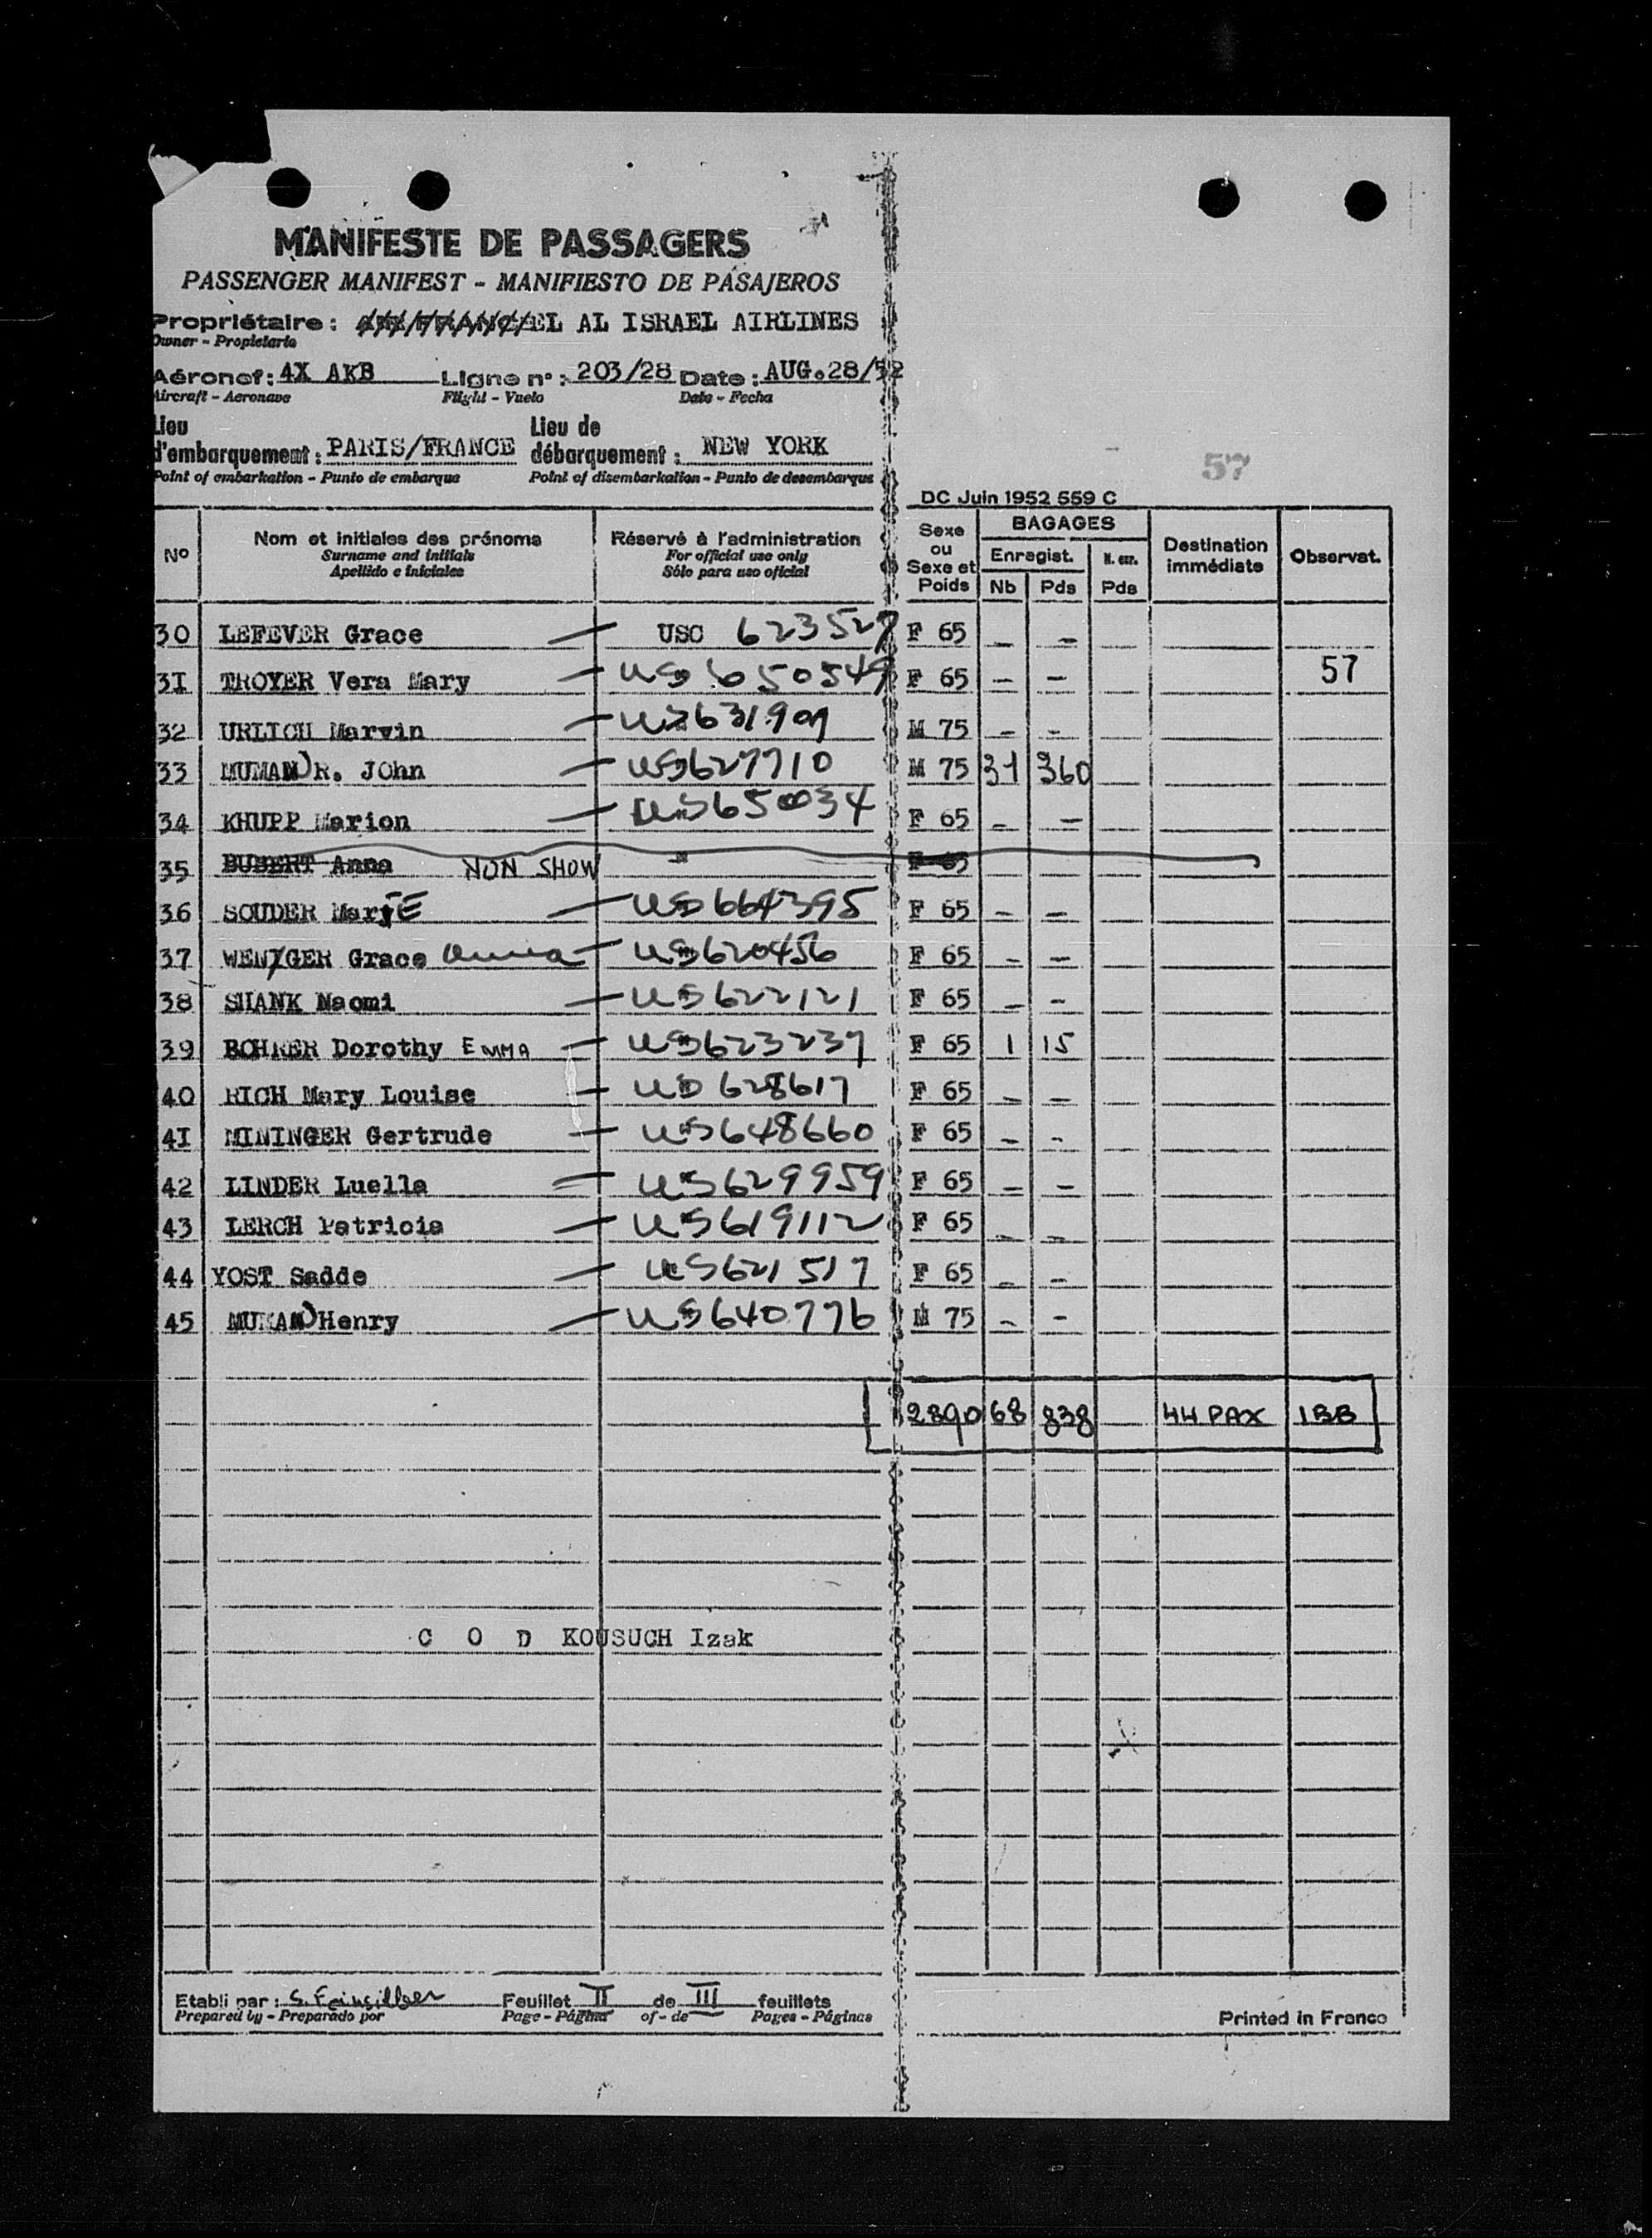 MANIFESTE DE PASSAGERS
PASSENGER MANIFEST - MANIFIESTO DE PASAJEROS
Propriétaire : AIR FRANCE EL AL ISRAEL AIRLINES
Owner - Propietario
Aéronef : 4X AKB Ligne n° : 203/28 Date : AUG.28/52
Aircraft - Aeronave Flight - Vuelo Date - Fecha
Lieu d'embarquement : PARIS/FRANCE Lieu de débarquement : NEW YORK
Point of embarkation - Punto de embarque Point of disembarkation - Punto de desembarque
57
DC Juin 1952 559 C
N° Nom et initiales des prénoms Réservé à l'administration Sexe ou Sexe et Poids BAGAGES Destination immédiate Observat.
Surname and initials For official use only Enregist. N. enr.
Apellido e iniciales Sólo para uso oficial Nb Pds Pds
30 LEFEVER Grace — USC 623527 F 65 — —
31 TROYER Vera Mary — US 650549 F 65 — — 57
32 URLICH Marvin — US631909 M 75 — —
33 MUMAW)R. JOhn — US627710 M 75 31 360
34 KHUPP Marion — US650034 F 65 — —
35 BUBERT Anna NON SHOW " F 65
36 SOUDER MariE — US664395 F 65 — —
37 WENGER Grace Anna — US620456 F 65 — —
38 SHANK Naomi — US622121 F 65 — —
39 BOHRER Dorothy EMMA — US623237 F 65 1 15
40 RICH Mary Louise — US 628617 F 65 — —
41 MININGER Gertrude — US648660 F 65 — —
42 LINDER Luella — US629959 F 65 — —
43 LERCH Patricia — US619112 F 65 — —
44 YOST Sadde — US621517 F 65 — —
45 MUMAW)Henry — US640776 M 75 — —
2890 68 838 44 PAX 1BB
C O D KOUSUCH Izak
Etabli par : S. Fainsilber Feuillet II de III feuillets
Prepared by - Preparado por Page - Página of - de Pages - Páginas
Printed in France